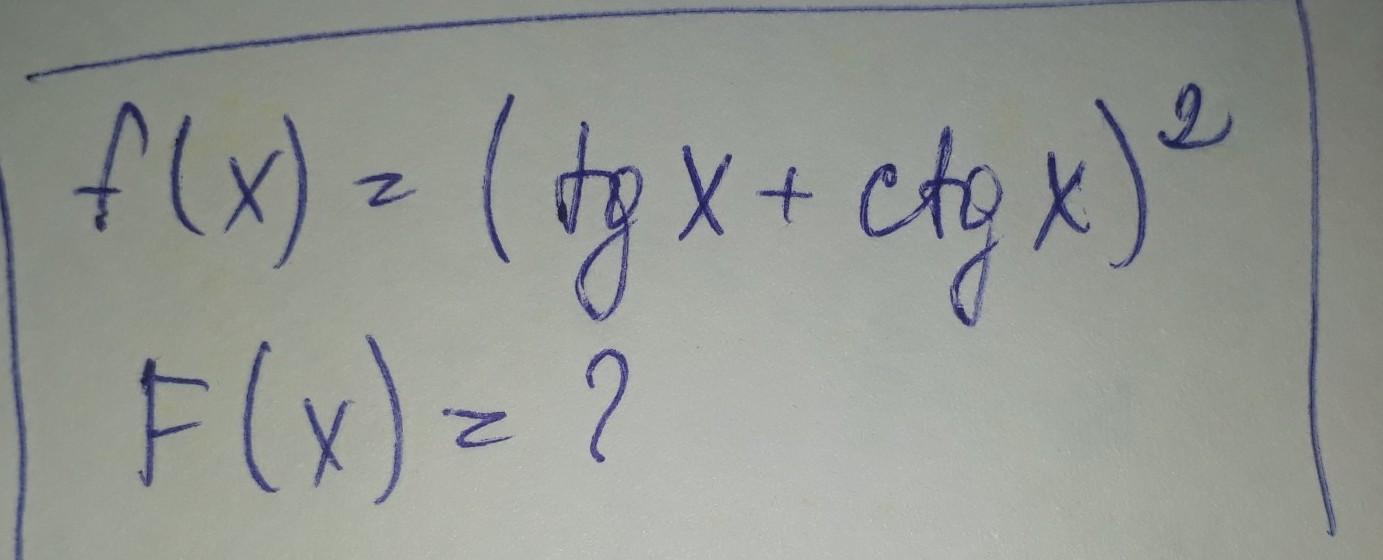 f(x) = (tg x + ctg x)²
F(x) = ?